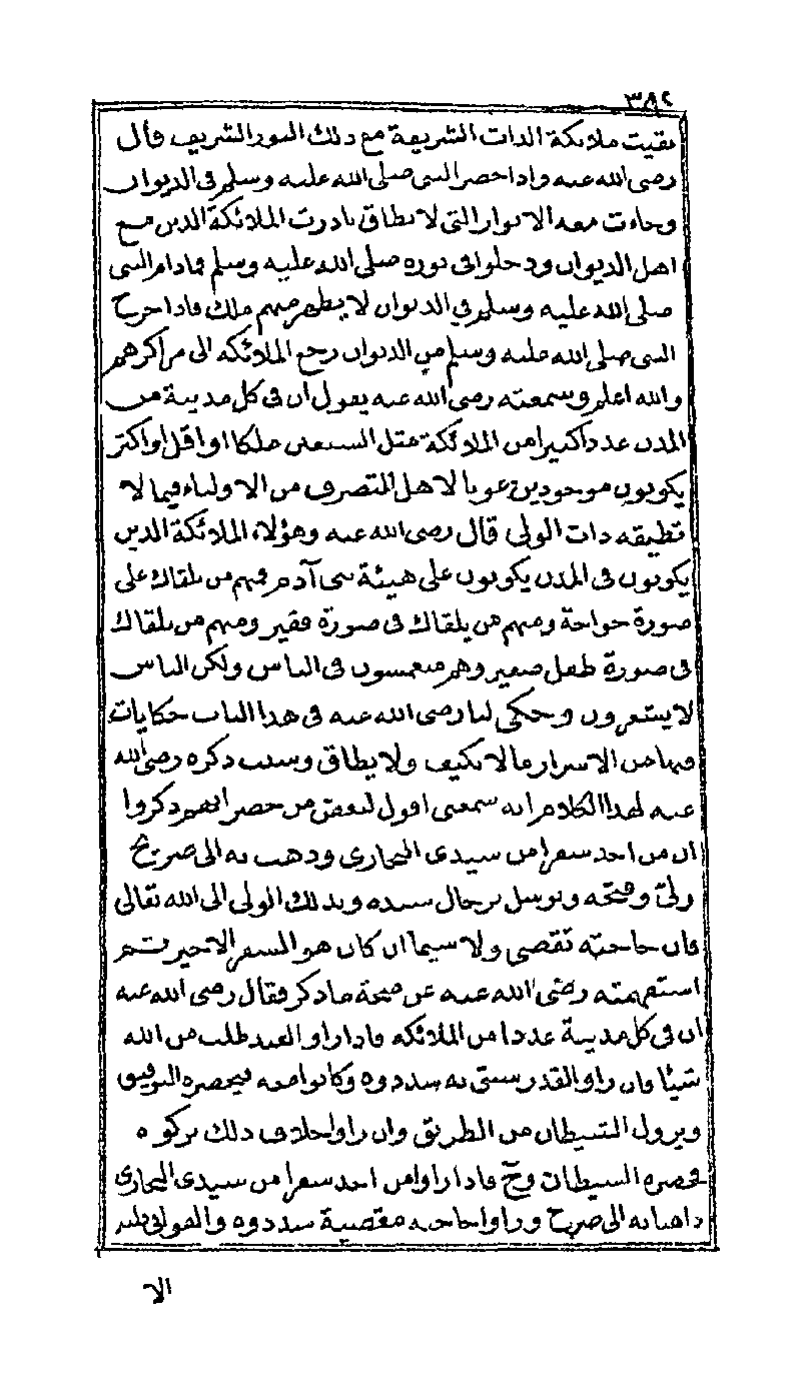 ٣٨٢
بقيت ملائكة الذات الشريفة مع ذلك النور الشريف قال
رضي الله عنه واذا حضر النبي صلى الله عليه وسلم في الديوان
وجاءت معه الانوار التي لا تطاق بادرت الملائكة الذين مع
اهل الديوان ودخلوا في نوره صلى الله عليه وسلم فمادام النبي
صلى الله عليه وسلم في الديوان لا يظهر منهم ملك فاذا خرج
النبي صلى الله عليه وسلم من الديوان رجع الملائكة الى مراكزهم
والله اعلم وسمعته رضي الله عنه يقول ان في كل مدينة من
المدن عددا كثيرا من الملائكة مثل السبعين ملكا او اقل او اكثر
يكونون موجودين عونا لاهل التصرف من الاولياء فيما لا
تطيقه ذات الولي قال رضي الله عنه وهؤلاء الملائكة الذين
يكونون في المدن يكونون على هيئة بني آدم فمنهم من يلقاك على
صورة خواجة ومنهم من يلقاك في صورة فقير ومنهم من يلقاك
في صورة طفل صغير وهم منغمسون في الناس ولكن الناس
لا يشعرون وحكى لنا رضي الله عنه في هذا الباب حكايات
فيها من الاسرار ما لا يكيف ولا يطاق وسبب ذكره رضي الله
عنه لهذا الكلام انه سمعني اقول لبعض من حضر انهم ذكروا
ان من اخذ سفرا من سيدي البخاري وذهب به الى ضريح
ولي وفتحه وتوسل برجال سنده وبذلك الولي الى الله تعالى
فان حاجته تقضى ولا سيما ان كان هو السفر الاخير ثم
استفهمته رضي الله عنه عن صحة ما ذكر فقال رضي الله عنه
ان في كل مدينة عددا من الملائكة فاذا راوا العبد طلب من الله
شيئا فان راوا القدر سبق به سددوه وكانوا معه فيحضره التوفيق
ويزول الشيطان من الطريق وان راوا خلاف ذلك تركوه
فحضره الشيطان وح فاذا راوا من اخذ سفرا من سيدي البخاري
ذاهبا به الى ضريح وراوا حاجته مقضية سددوه والقوا في قلبه
الا